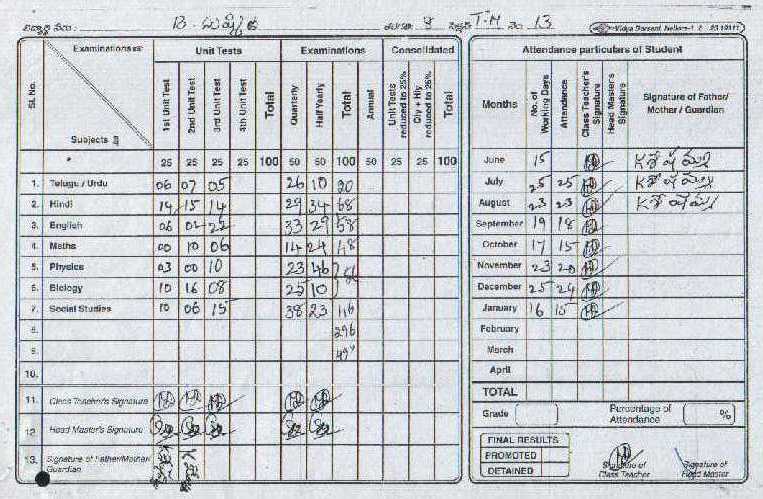 విద్యార్థి పేరు: B. తరగతి 8 సెక్షన్ T-M నెం 13
Vidya Darsani, Nellore-1.
Examinations
Unit Tests Examinations Consolidated
Sl. No. Subjects
1st Unit Test 2nd Unit Test 3rd Unit Test 4th Unit Test Total Quarterly Half Yearly Total Annual Unit Tests reduced to 25% Qly + Hly reduced to 25% Total
25 25 25 25 100 50 50 100 50 25 25 100
1. Telugu / Urdu 06 07 05 26 10
2. Hindi 14 15 14 29 34 68
3. English 06 33 29 58
4. Maths 00 10 06 14 24 48
5. Physics 03 00 10 23 46
6. Biology 10 16 08 25 10
7. Social Studies 10 06 15 38 23
8. 296
9.
10.
11. Class Teacher's Signature
12 Head Master's Signature
13. Signature of Father/Mother/
Guardian
Attendance particulars of Student
Months No. of Working Days Attendance Class Teacher's Signature Head Master's Signature Signature of Father/
Mother / Guardian
June 15
July 25 25
August 23 23
September 19 18
October 17 15
November 23 20
December 25 24
January 16 15
February
March
April
TOTAL
Grade Percentage of
Attendance %
FINAL RESULTS
PROMOTED
DETAINED
Signature of
Class Teacher
Signature of
Head Master